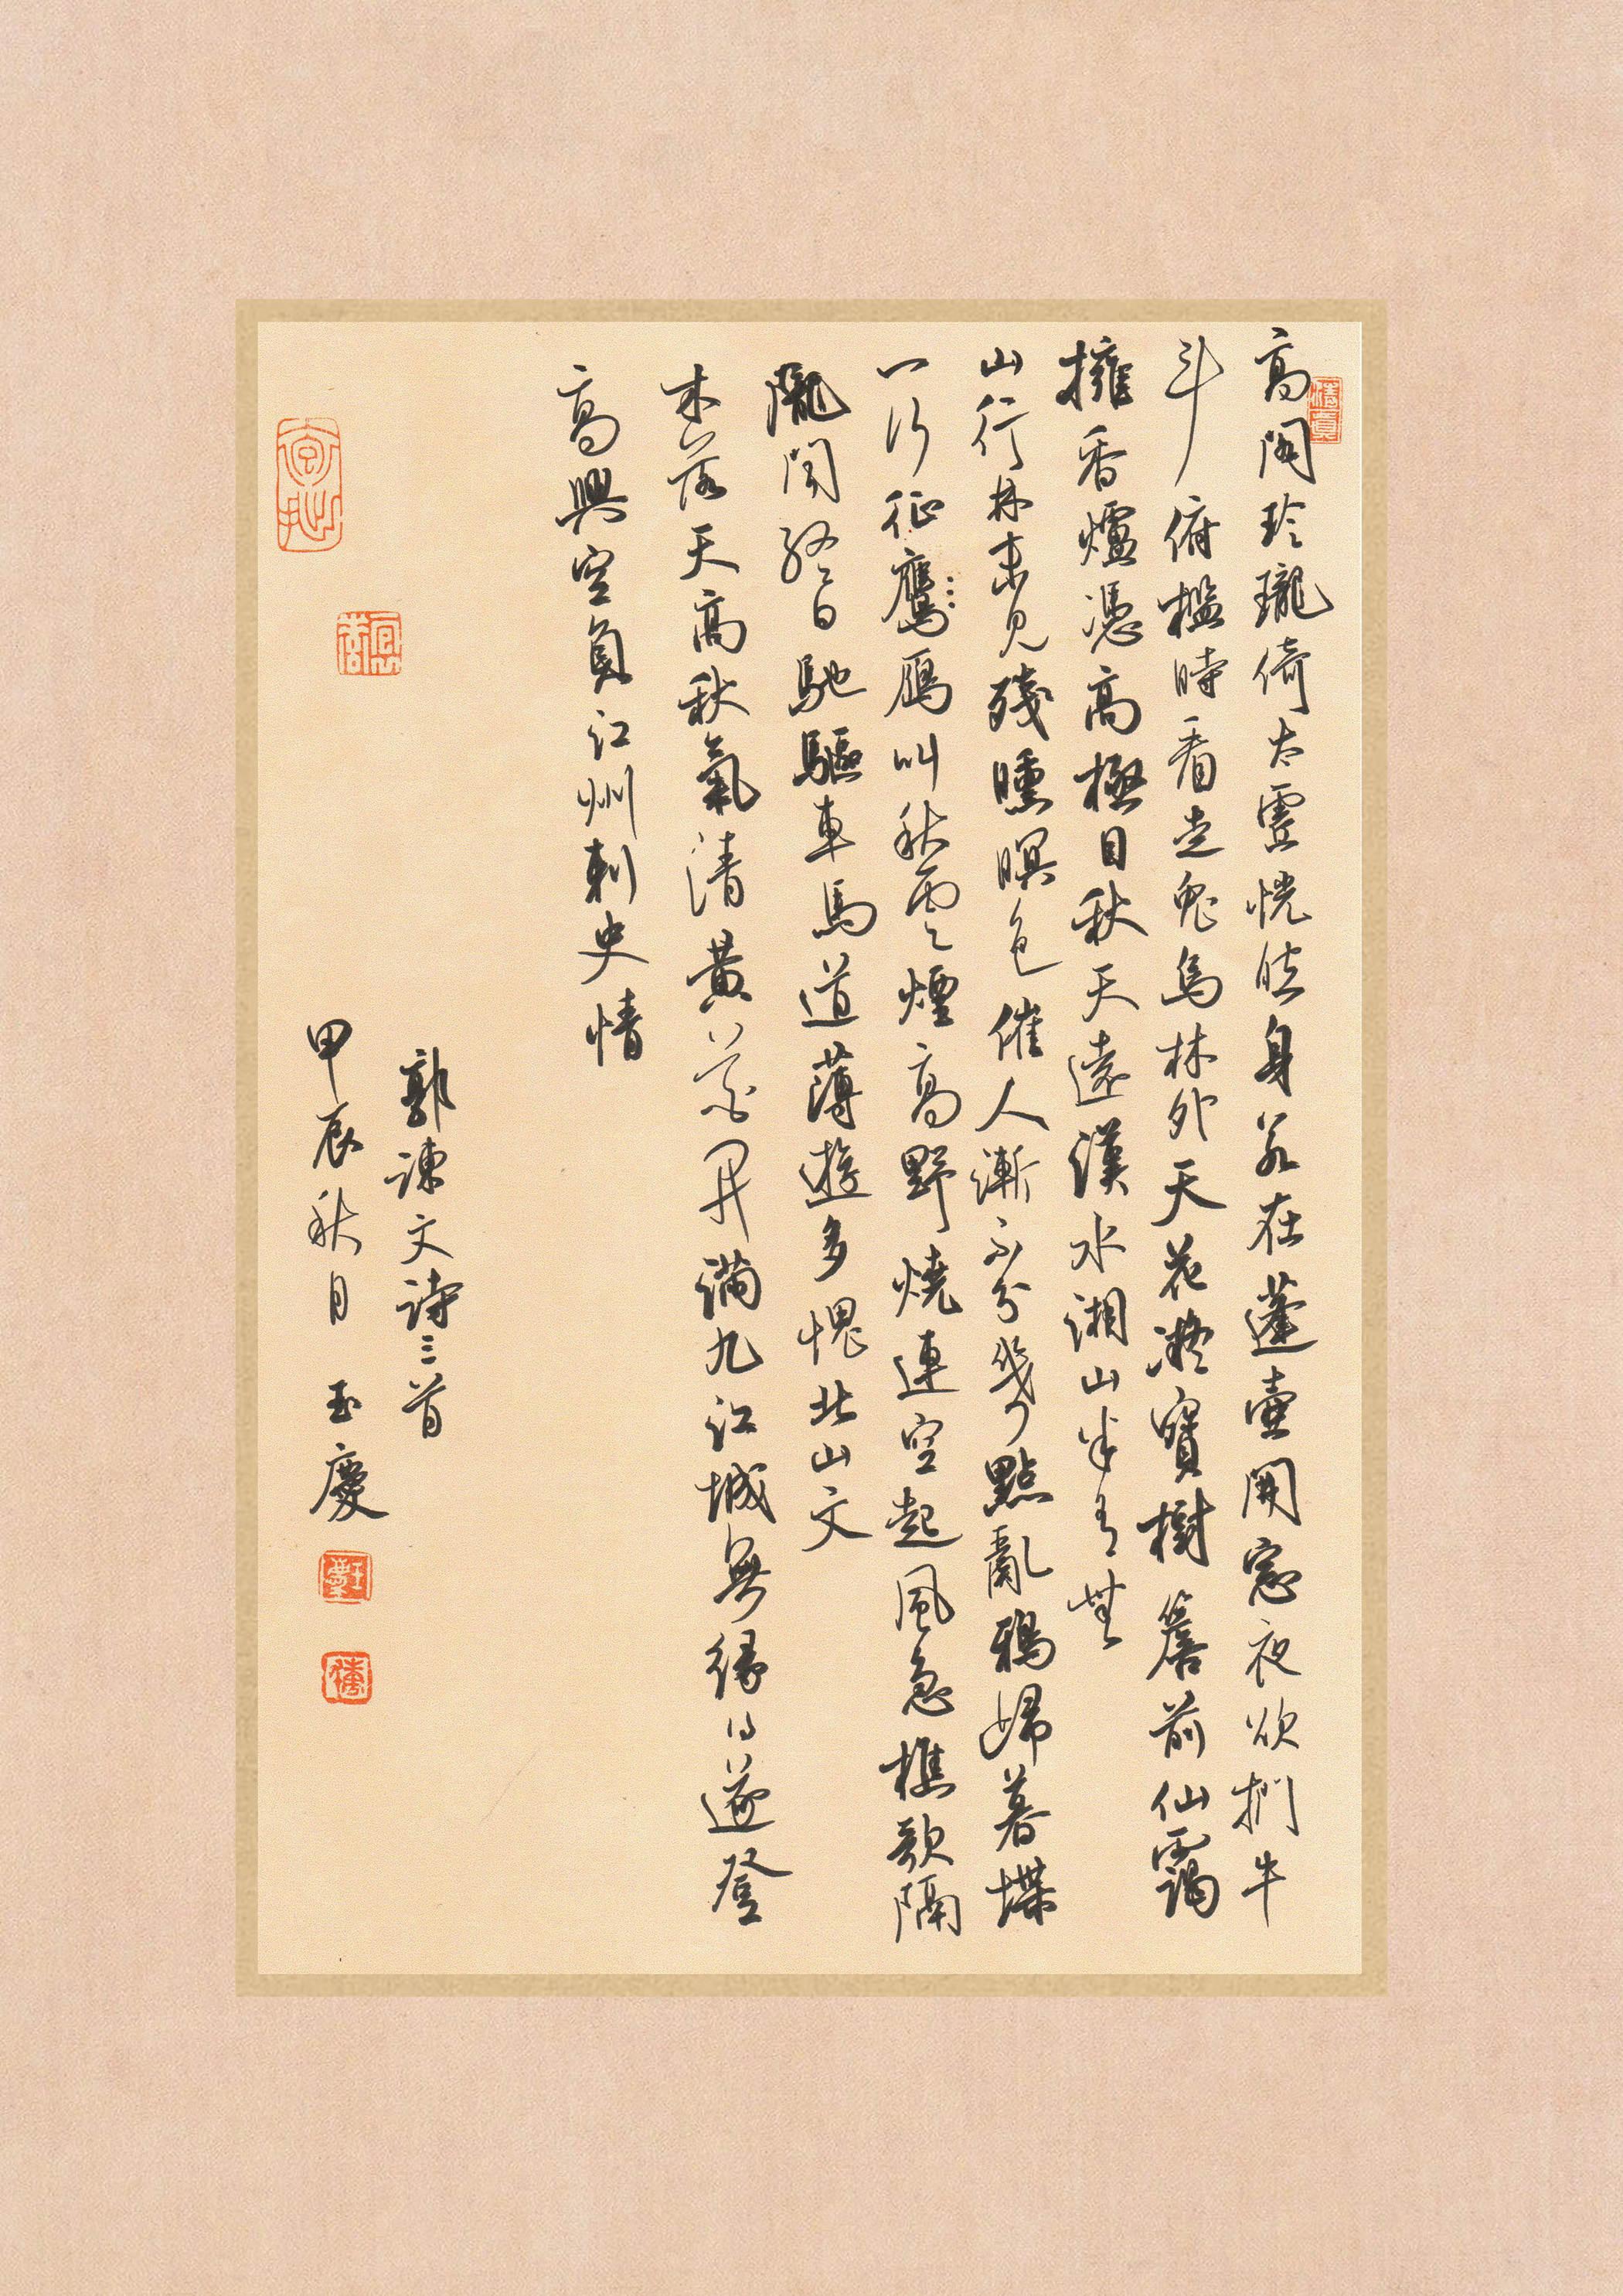 高閣玲瓏倚太虛恍然身若在蓬壺開窓夜欲捫牛
斗俯檻時看走兔烏林外天花凝寶樹簷前仙靄
擁香爐憑高極目秋天遠漢水湘山半有無
山行林未見殘曛暝色催人漸不分幾點亂鴉歸暮堞
一行征鷹鴈叫秋雲煙高野燒連空起風急樵歌隔
隴聞終日馳驅車馬道薄遊多愧北山文
木落天高秋氣清黃花開滿九江城無緣得遂登
高興空負江州刺史情
郭諫文詩三首
甲辰秋月 玉慶